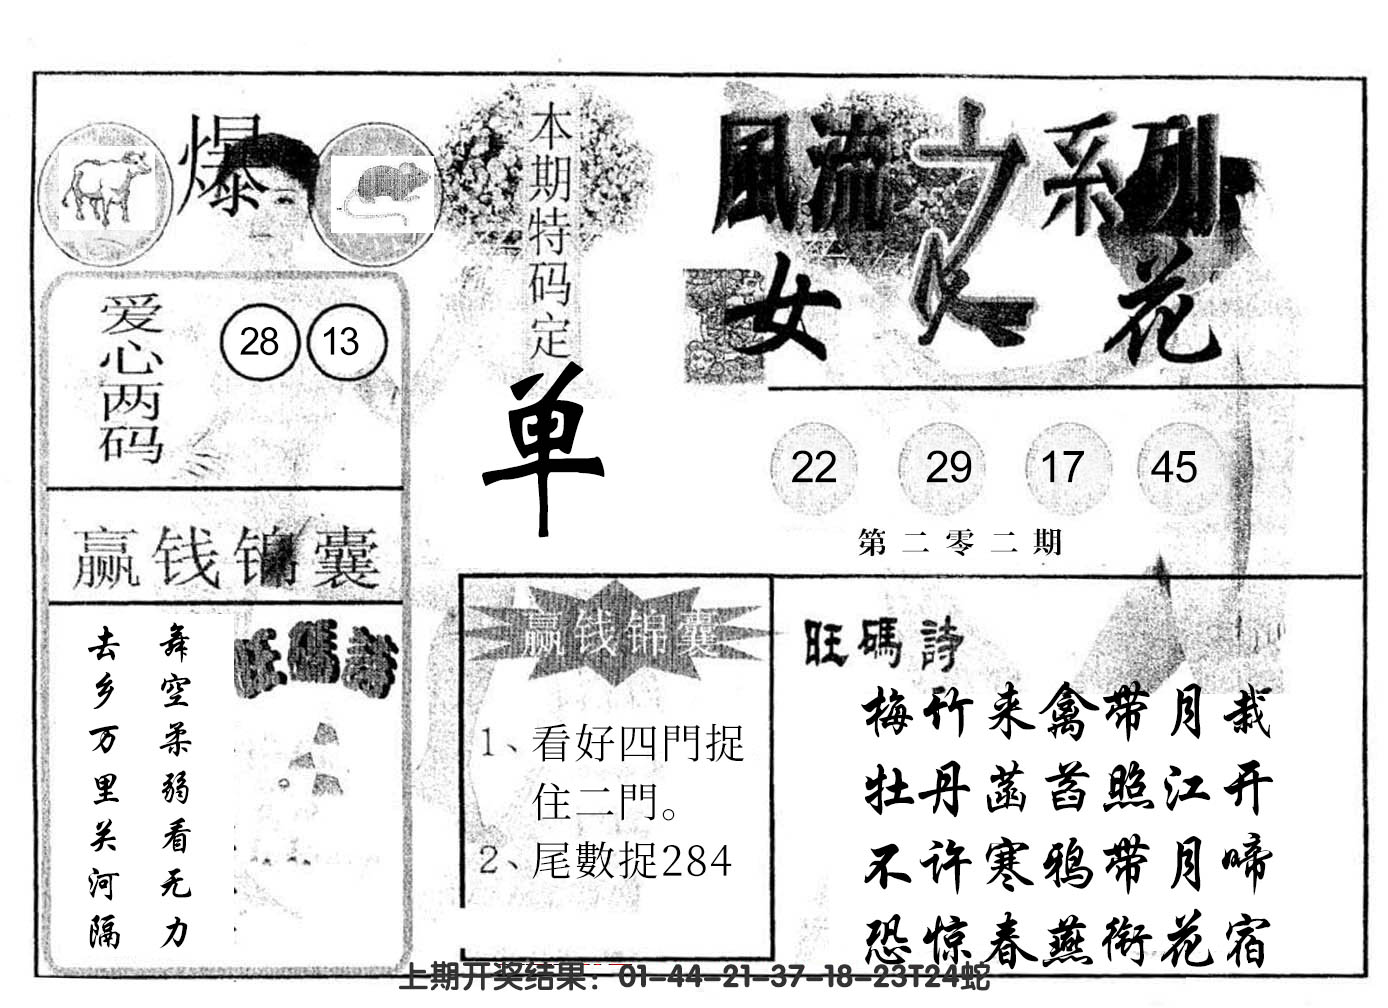 爆
爱心两码
28 13
赢钱锦囊
舞空柔弱看无力
去乡万里关河隔
旺碼詩
本期特码定
单
風流之系列
女人花
22 29 17 45
第二零二期
赢钱锦囊
1、看好四門捉
住二門。
2、尾數捉284
旺碼詩
梅竹来禽带月栽
牡丹菡萏照江开
不许寒鸦带月啼
恐惊春燕衔花宿
上期开奖结果：01-44-21-37-18-23T24蛇